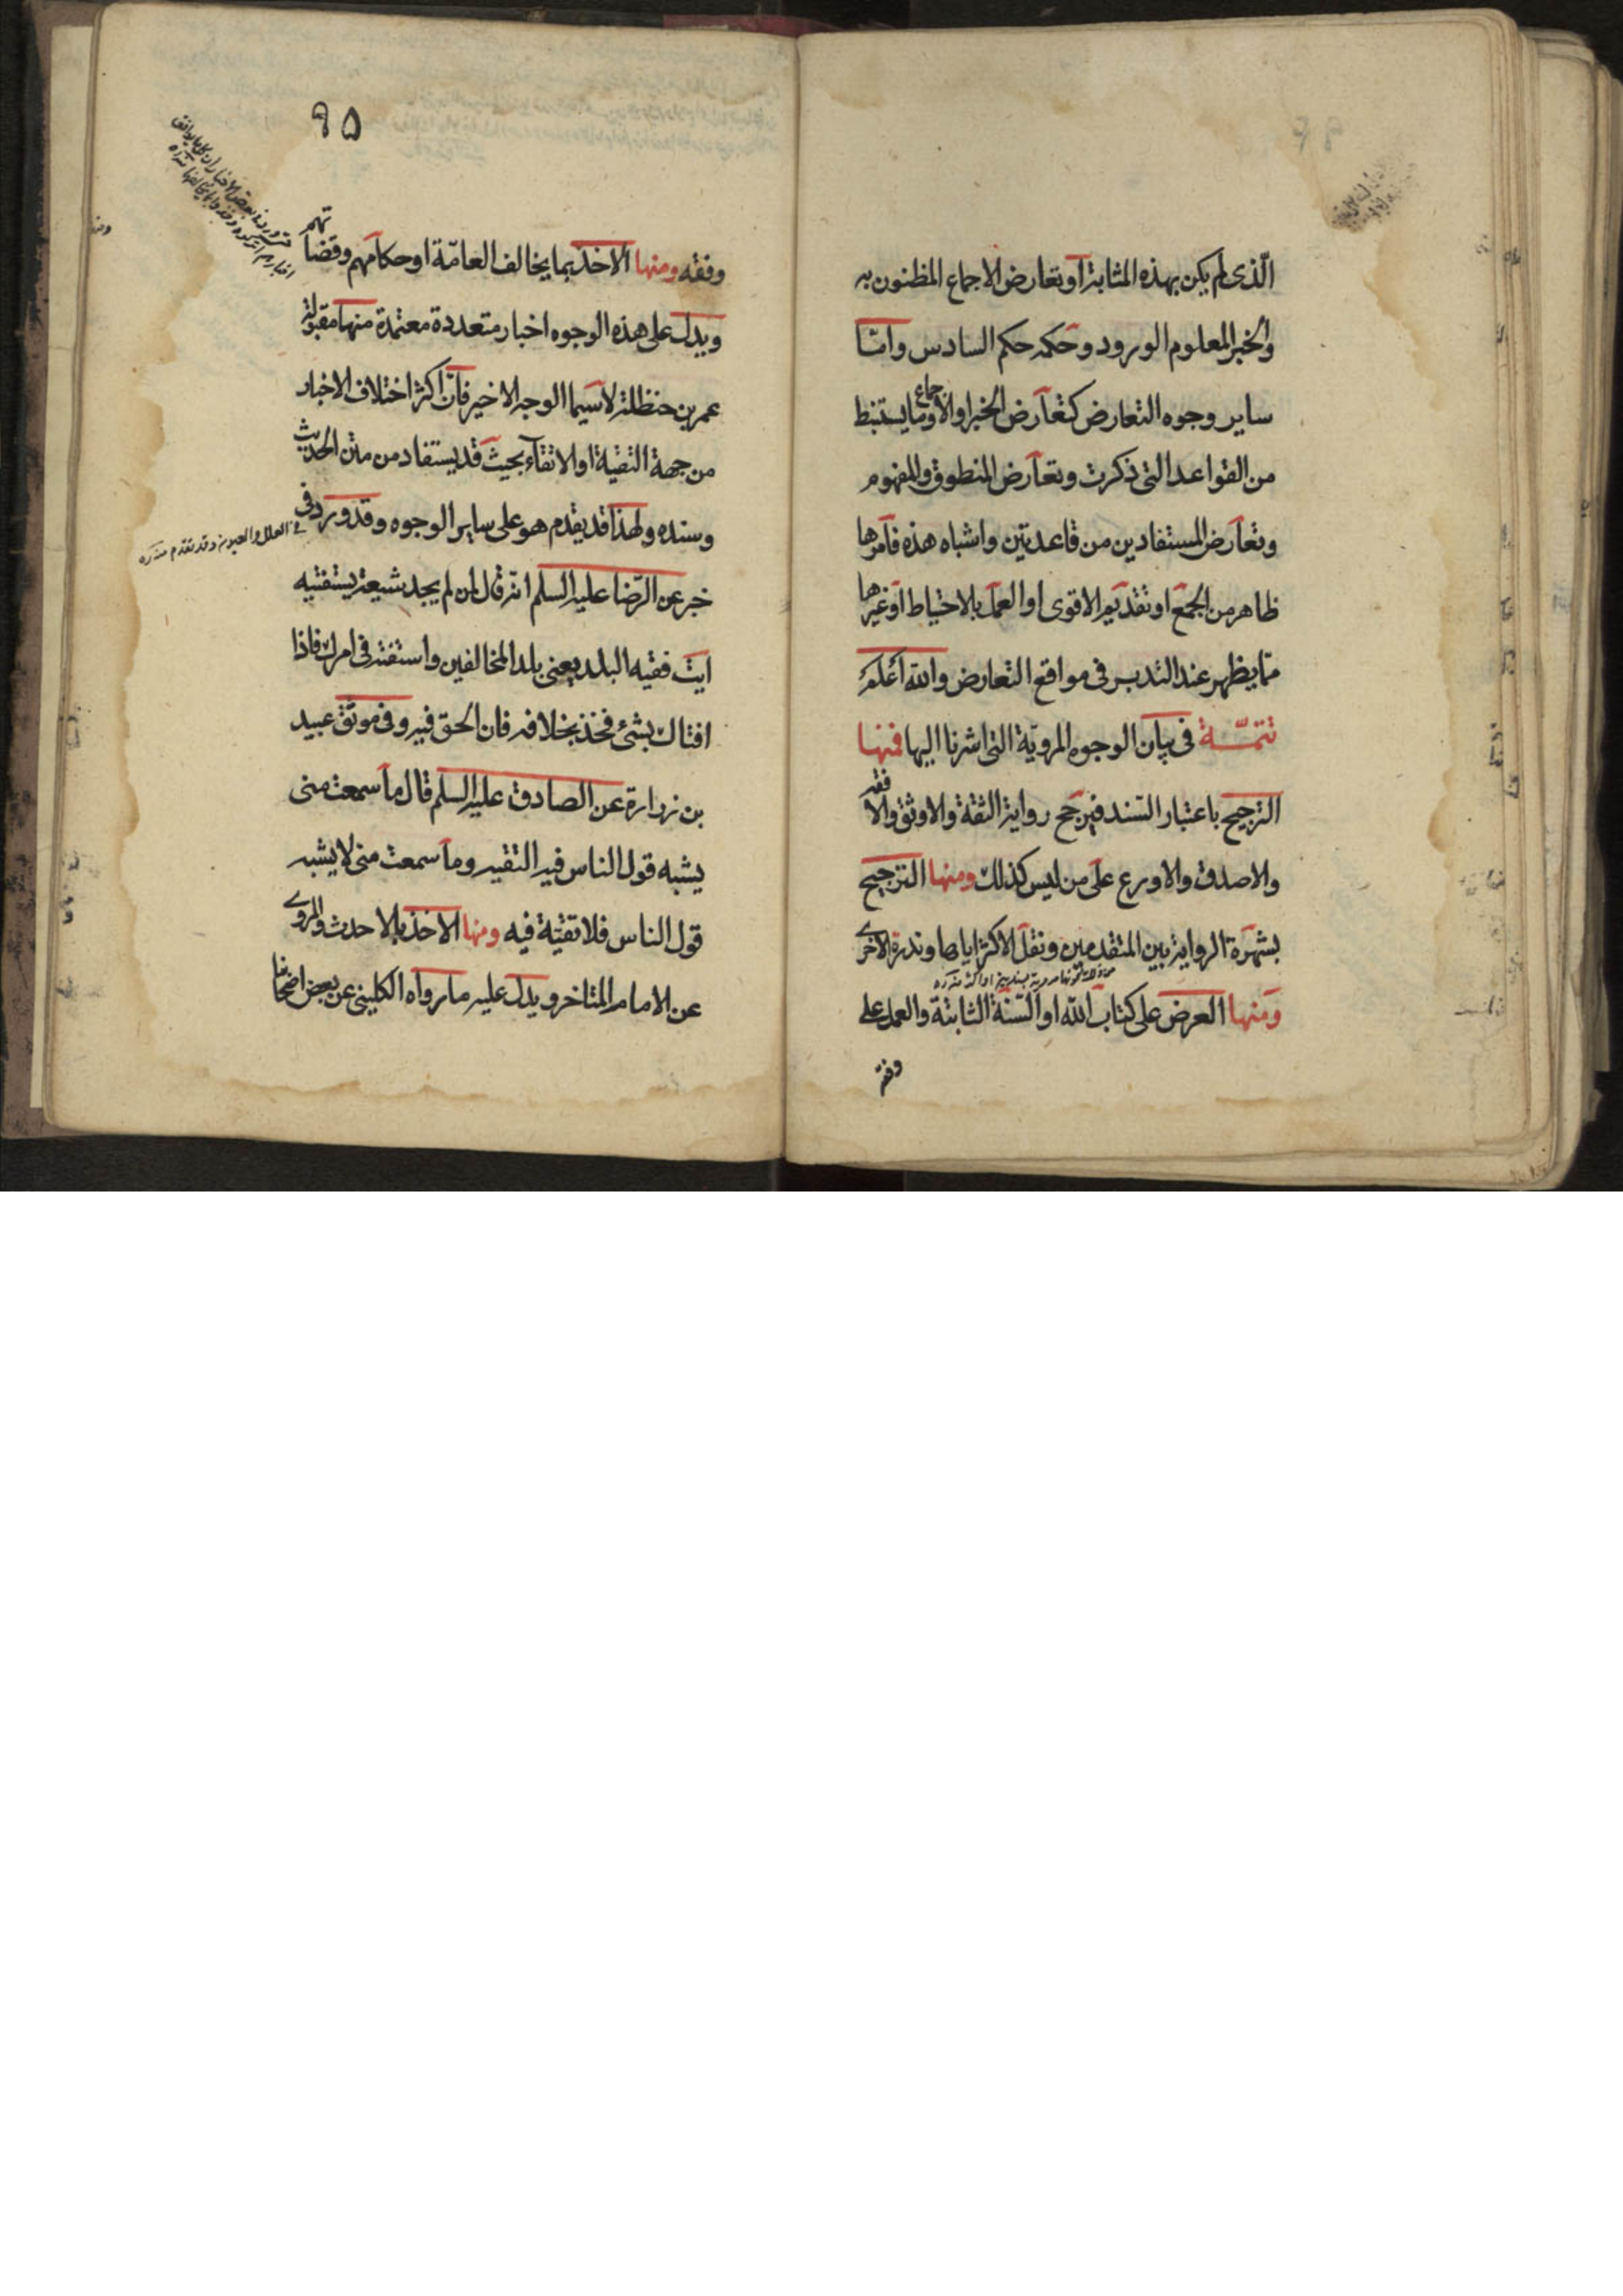 الّذى لم يكن بهذه المثابة او تعارض الاجماع المظنون به
والخبر المعلوم الورود وحكمه حكم السادس وامّا
ساير وجوه التعارض كتعارض الخبر او الاجماع وما يستنبط
من القواعد التى ذكرت وتعارض المنطوق والمفهوم
وتعارض المستفادين من قاعدتين واشباه هذه فامرها
ظاهر من الجمع او تقديم الاقوى او العمل بالاحتياط او غيرها
ممّا يظهر عند التدبر فى مواقع التعارض والله اعلم
تتمّــة فى بيان الوجوه المرويّة التى اشرنا اليها فمنها
الترجيح باعتبار السّند فيرجح رواية الثقة والاوثق والافقه
والاصدق والاورع على من ليس كذلك ومنها الترجيح
بشهرة الرواية بين المتقدمين ونقل الاكثر اياها وندرة الاخرى
ومنها العرض على كتاب الله او السّنة الثابتة والعمل على
وفقه
٩٥
وفقه ومنها الاخذ بما يخالف العامّة او حكامهم وقضاتهم
ويدل على هذه الوجوه اخبار متعددة معتمدة منها مقبولة
عمر بن حنظلة لاسيما الوجه الاخير فانّ اكثر اختلاف الاخبار
من جهة التقية او الاتقاء بحيث قد يستفاد من متن الحديث
وسنده ولهذا قد يقدم هو على ساير الوجوه وقد ورد فى
فى العلل والعيون وقد تقدم منه ره
خبر عن الرّضا عليه السلم انّه قال لمن لم يجد شيعة يستفتيه
ايت فقيه البلد يعنى بلد المخالفين واستفته فى امرك فاذا
افتاك بشئ فخذ بخلافه فان الحق فيه وفى موثق عبيد
بن زرارة عن الصادق عليه السلم قال ما سمعت منى
يشبه قول الناس فيه التقيه وما سمعت منى لا يشبه
قول الناس فلا تقيّة فيه ومنها الاخذ بالاحدث والمروى
عن الامام المتاخر ويدل عليه ما رواه الكلينى عن بعض اصحابنا